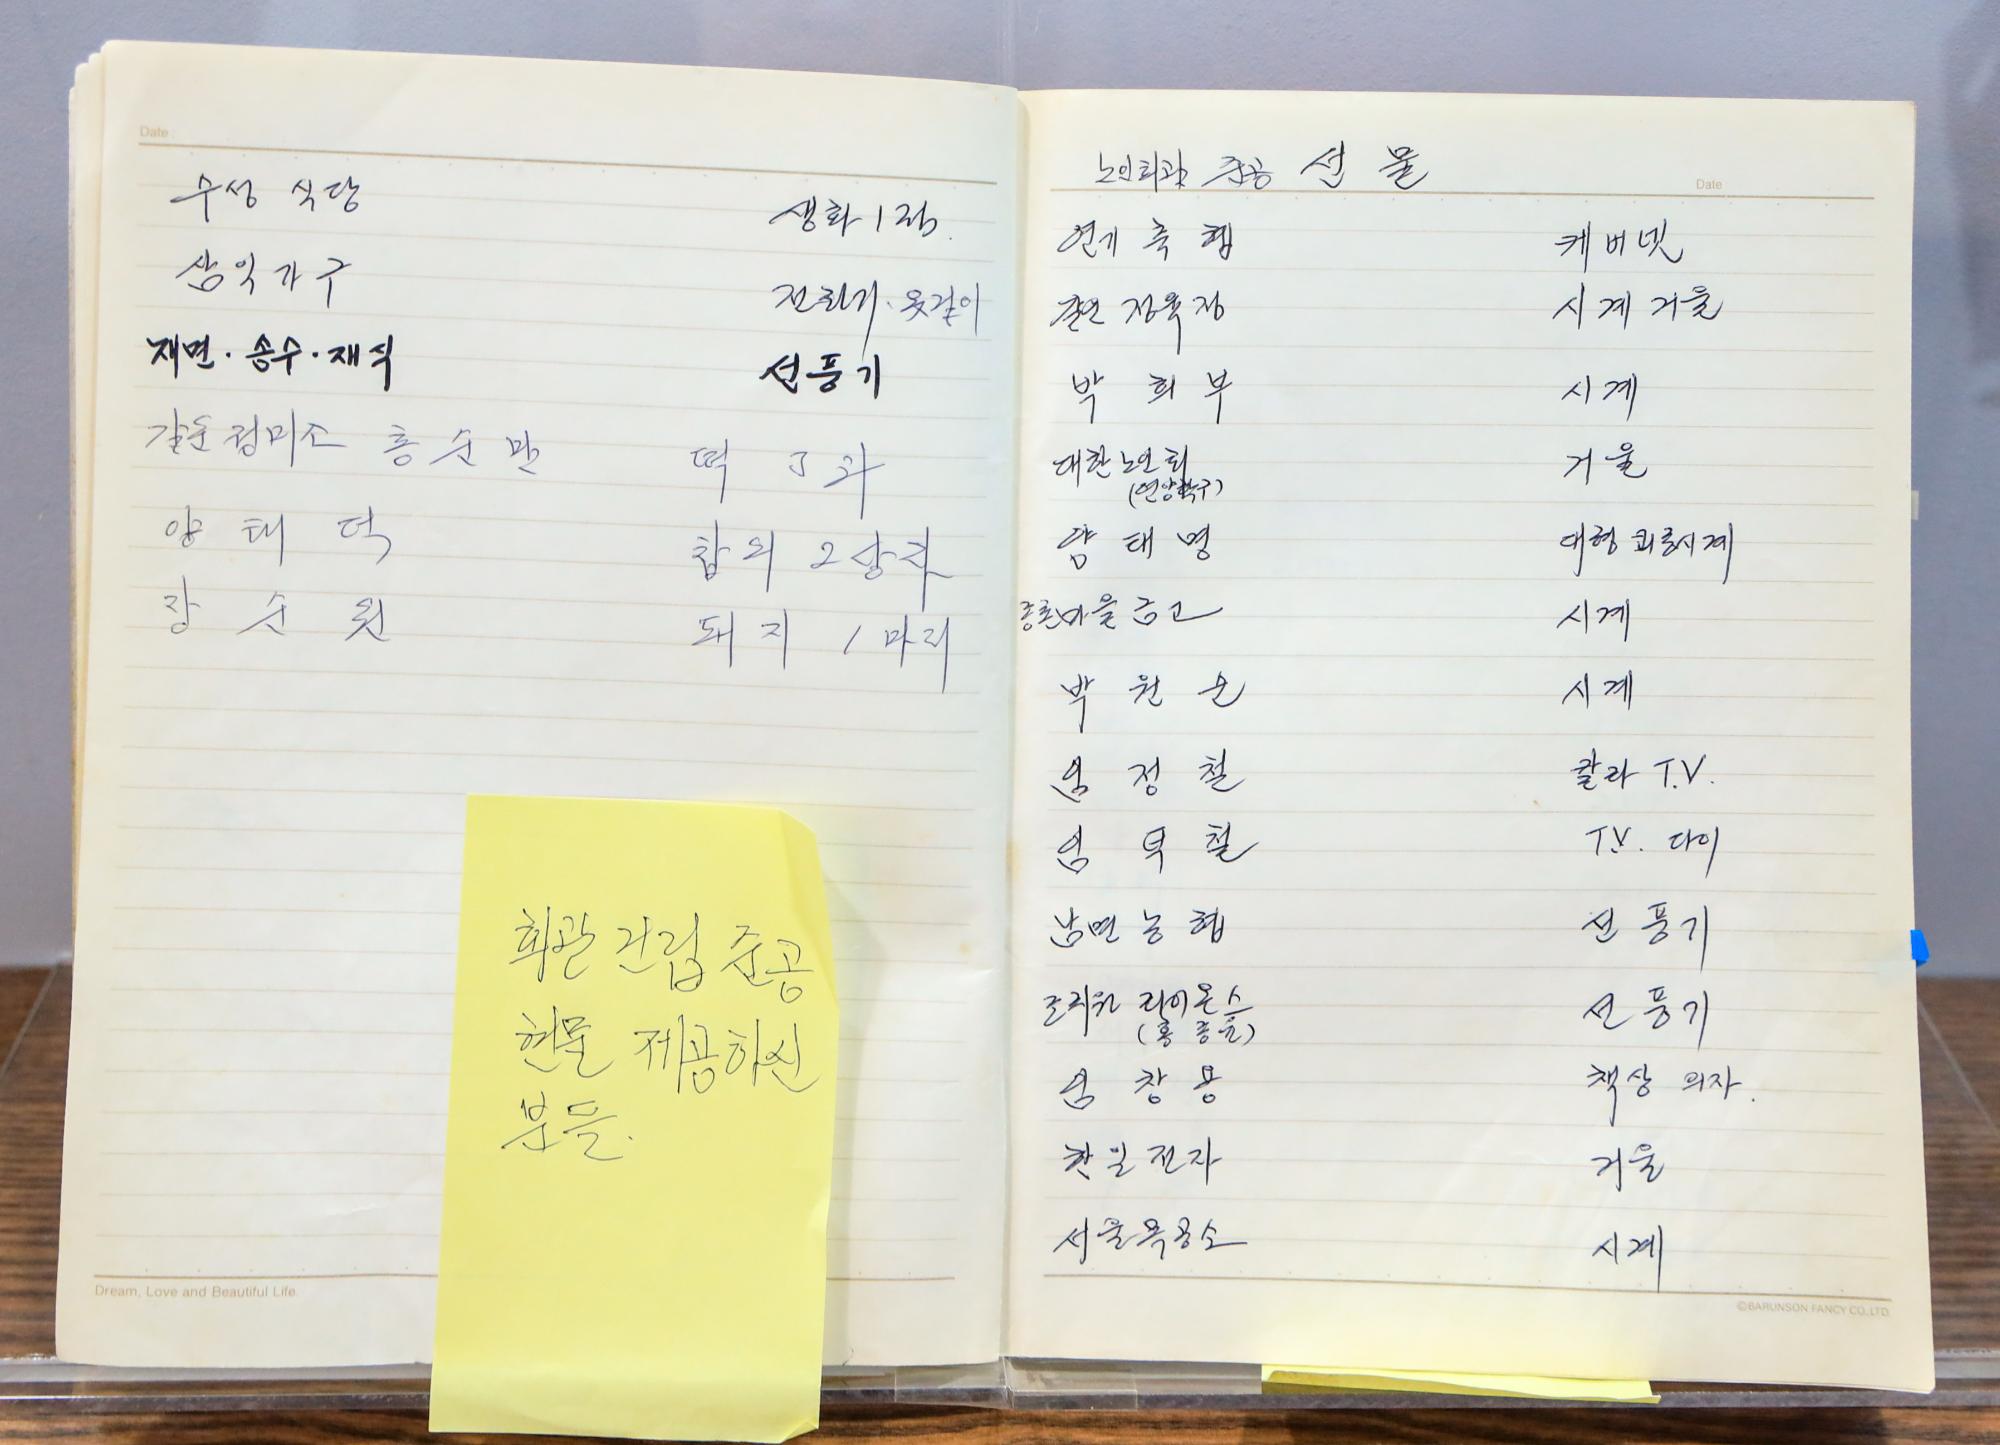 Date
수성 식당 생화 1점.
삼익가구 전화기·옷걸이
재면·송수·재식 선풍기
갈운정미소 홍순만 떡
양태덕 합의 2상자
장순원 돼지 1마리
회관 건립 준공
현물 제공하신
분들.
Dream, Love and Beautiful Life.
노인회관 준공 선물
Date
연기축협 케버넷
갈운 정육점 시계 거울
박희부 시계
대한노인회 거울
태명 대형 시계
종촌마을금고 시계
박원순 시계
임정철 칼라 T.V.
임덕철 T.V. 다이
남면농협 선풍기
조치원 라이온스 선풍기
(홍종율)
임창용 책상 의자.
한일전자 거울
서울목공소 시계
©BARUNSON FANCY CO.,LTD.